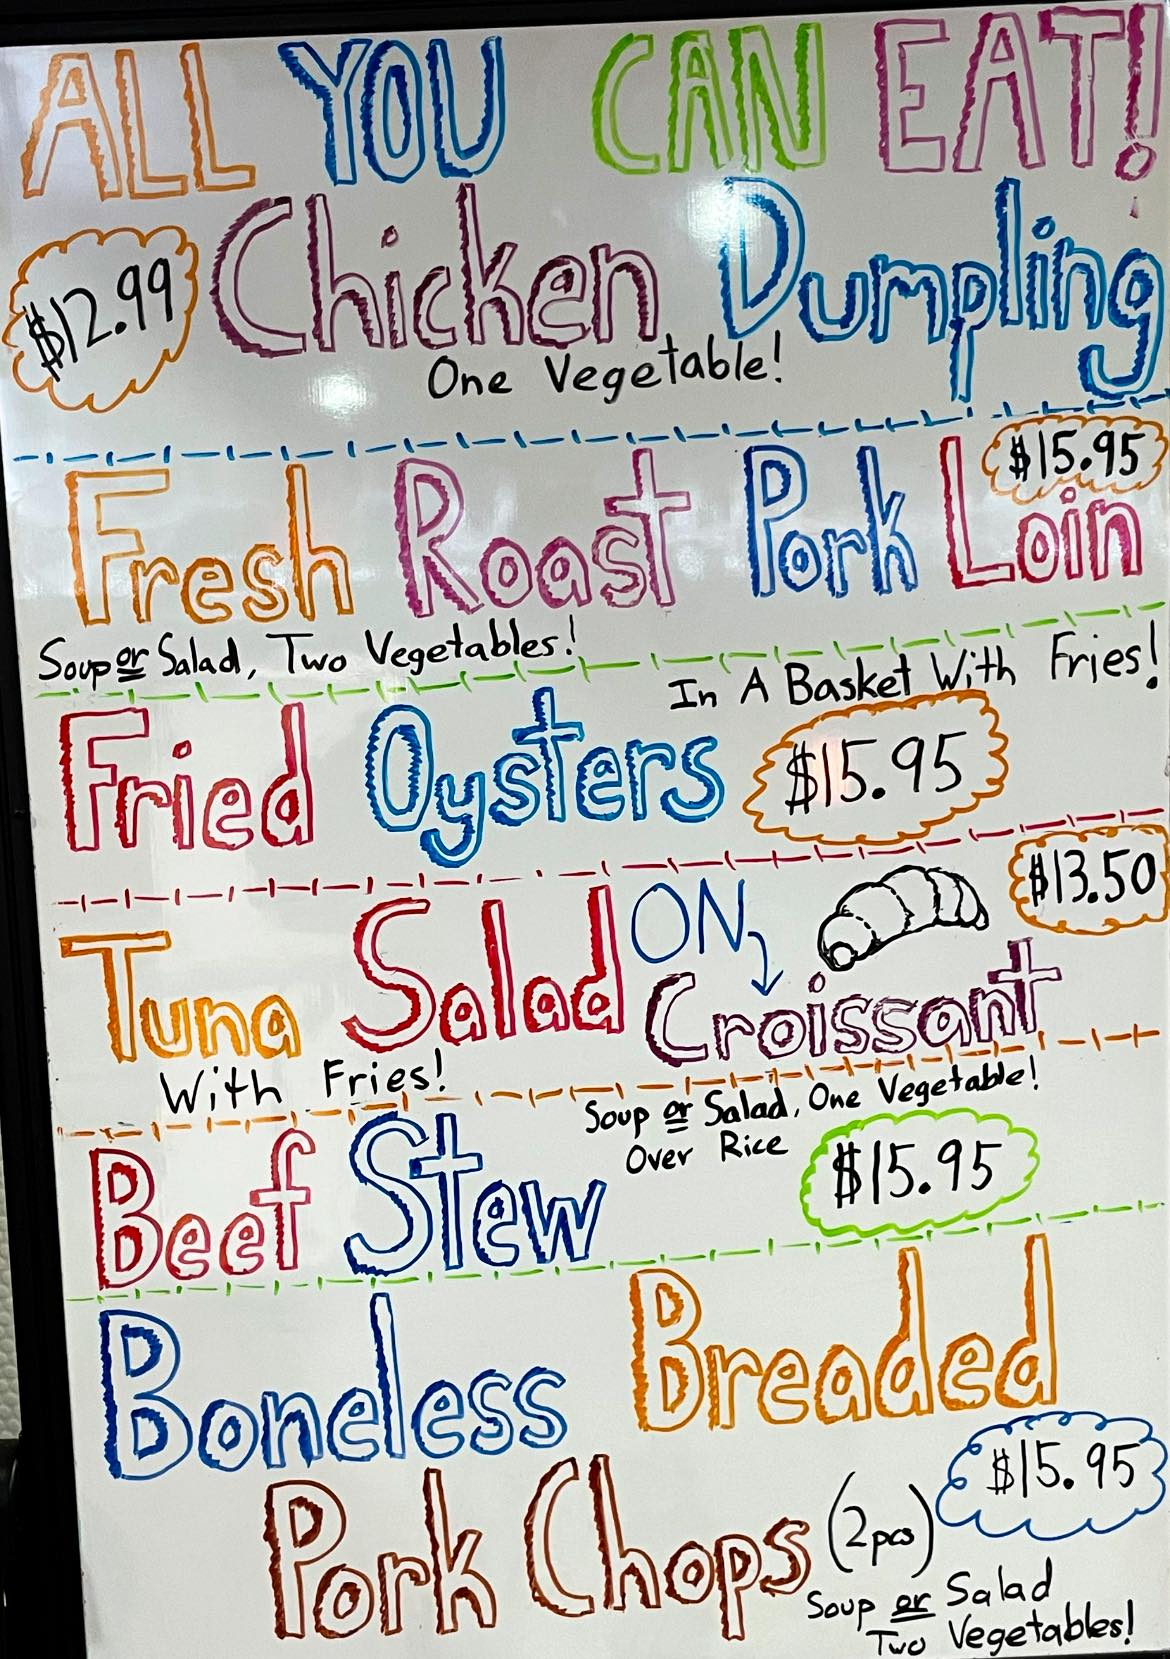 ALL YOU CAN EAT!
Chicken Dumpling
$12.99
One Vegetable!
$15.95
Fresh Roast Pork Loin
Soup or Salad, Two Vegetables!
In A Basket With Fries!
Fried Oysters $15.95
$13.50
Tuna Salad ON Croissant
With Fries!
Soup or Salad, One Vegetable!
Over Rice
Beef Stew $15.95
Boneless Breaded
Pork Chops (2pcs) $15.95
Soup or Salad
Two Vegetables!